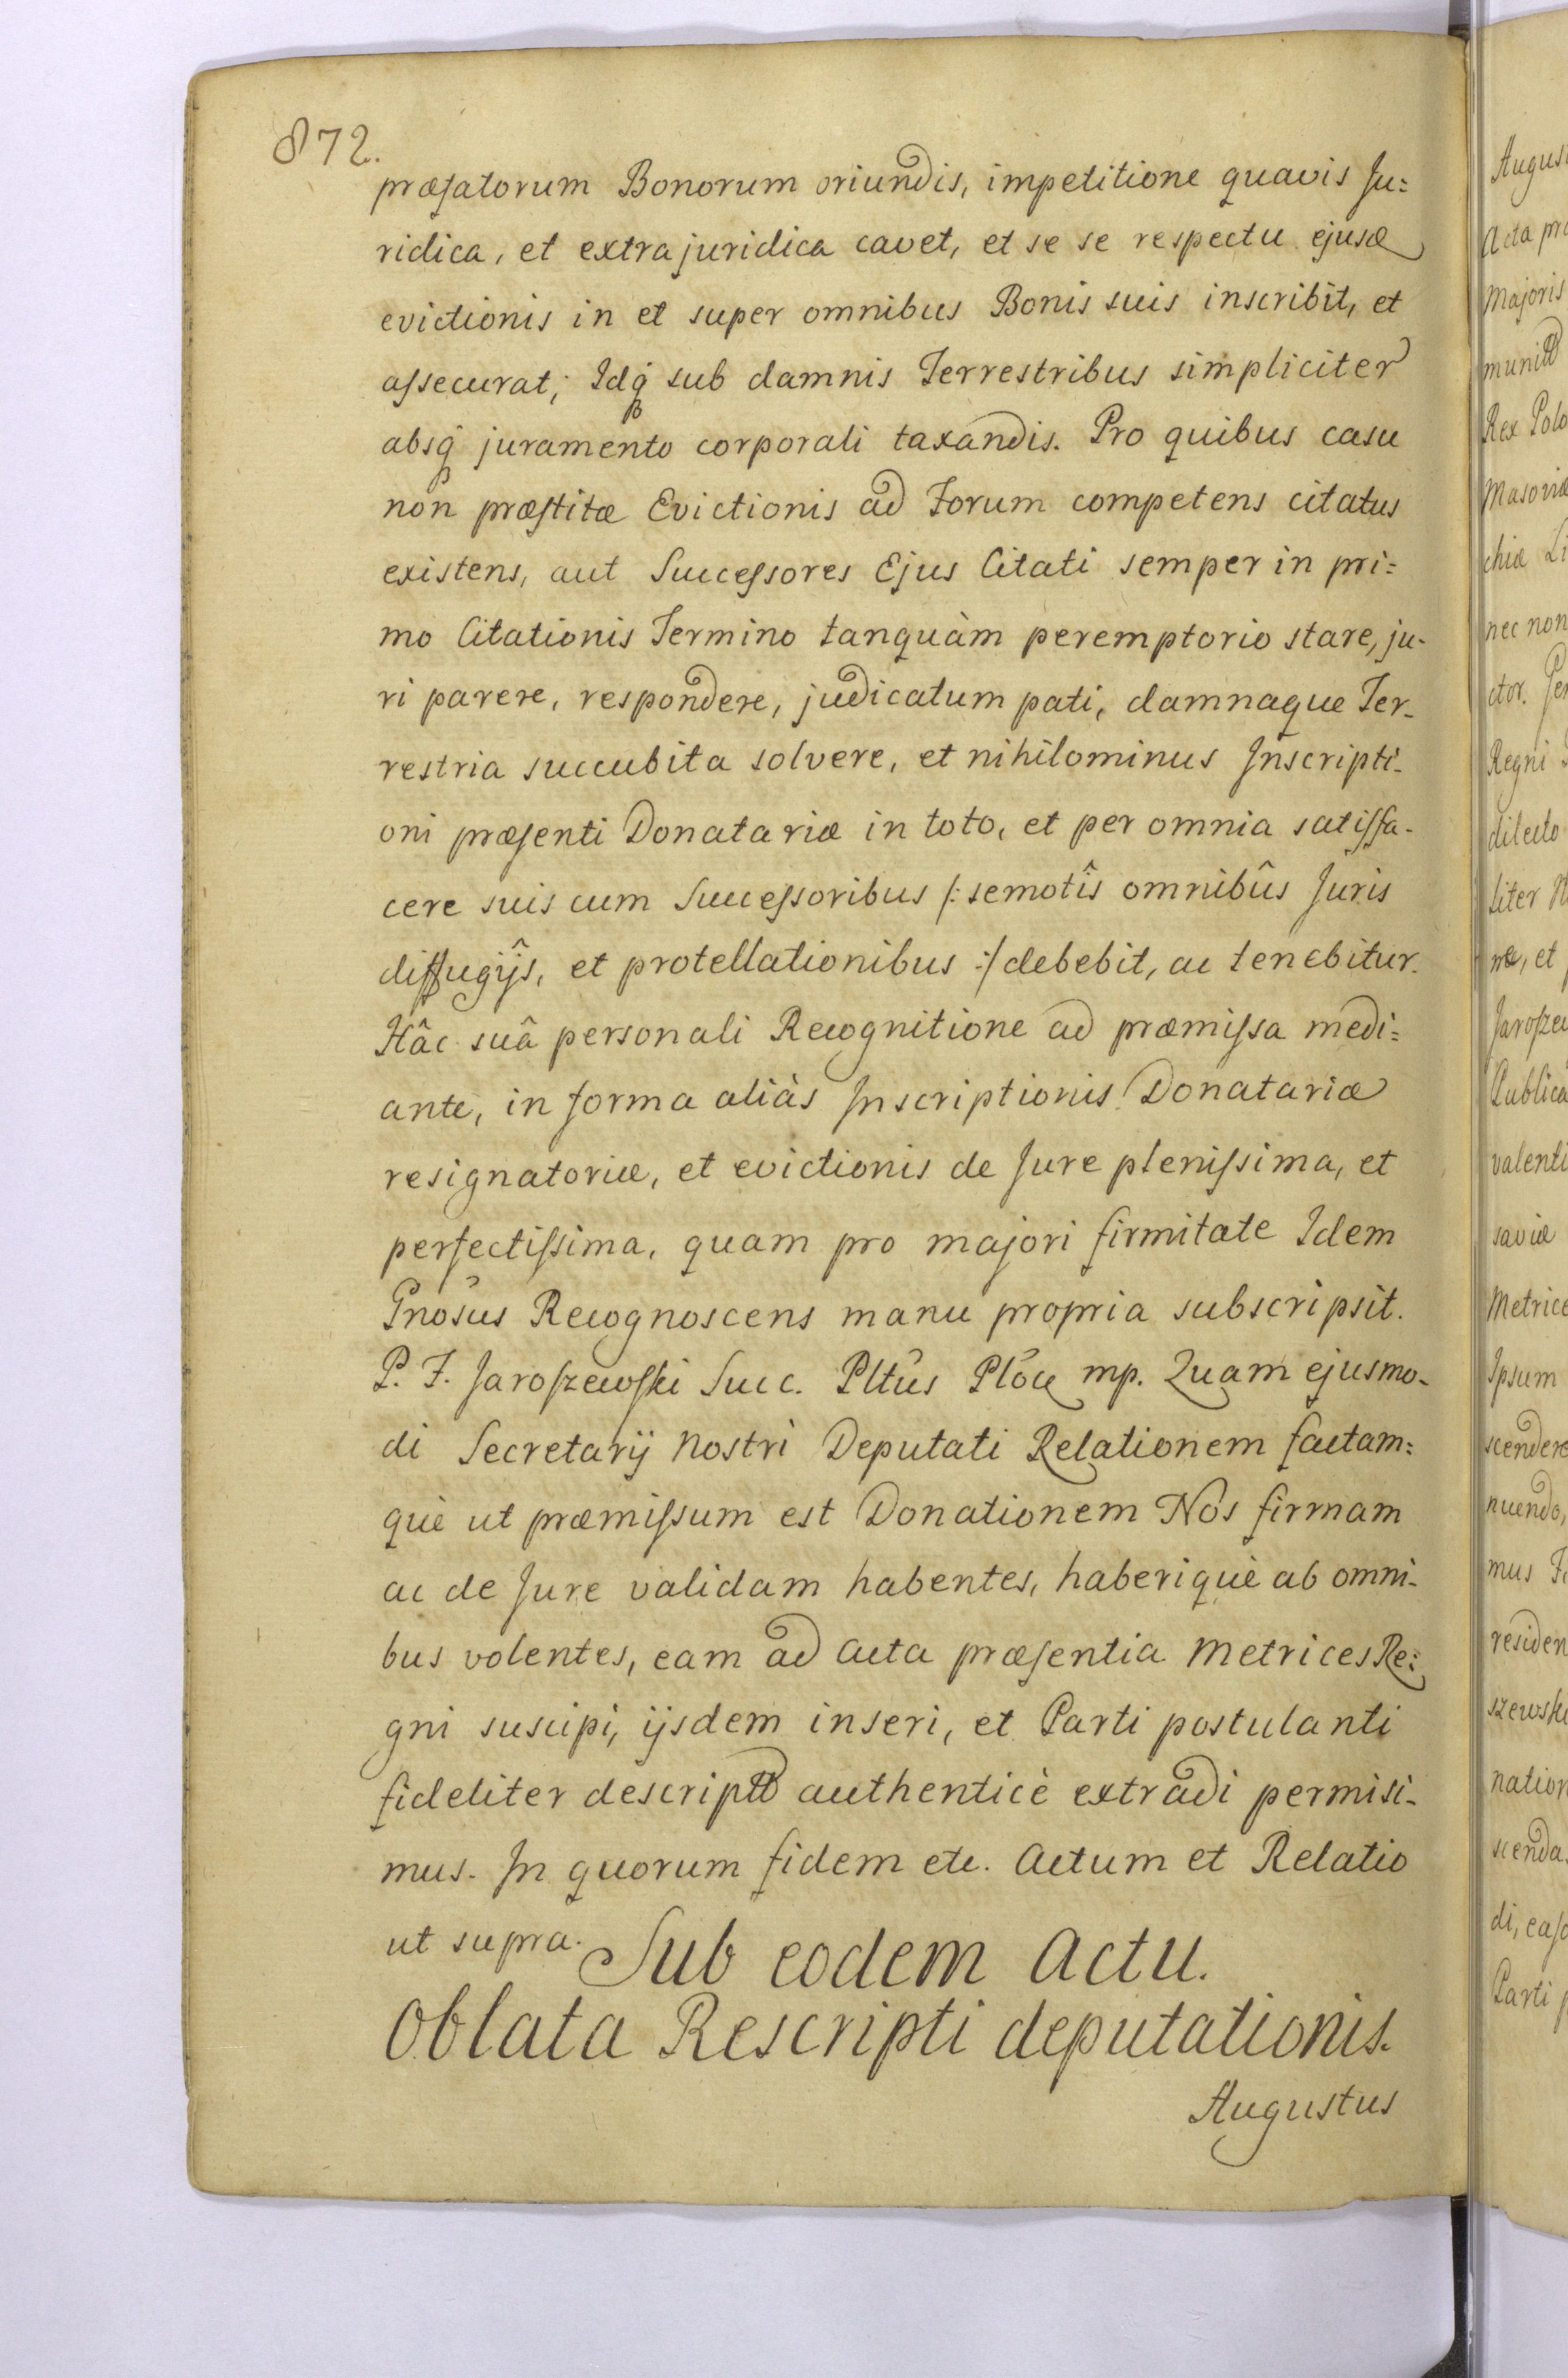 872.
præfatorum Bonorum oriundis, impetitione quavis Ju=
ridica, et extrajuridica cavet, et se se respectu ejusd
evictionis in et super omnibus Bonis suis inscribit, et
aſsecurat; Idq́ sub damnis Terrestribus simpliciter
absq́ juramento corporali taxandis. Pro quibus casu
non præſtitæ Evictionis ad Forum competens citatus
existens, aut Succeſsores Ejus Citati semper in pri=
mo Citationis Termino tanquàm peremptorio stare, ju-
ri parere, respondere, judicatum pati, damnaque Ter-
restria succubita solvere, et nihilominus Inscripti-
oni præſenti Donatariæ in toto, et per omnia satiſfa-
cere suis cum Succeſsoribus /: semotîs omnibûs Juris
diffugijs, et protellationibus :/ debebit, ac tenebitur.
Hâc suâ personali Recognitione ad præmiſsa medi=
ante, in forma aliàs Inscriptionis Donatariæ
resignatoriæ, et evictionis de Jure pleniſsima, et
perfectiſsima, quam pro majori firmitate Idem
Gnosus Recognoscens manu propria subscripsit.
P. F. Jaroſzewſki Succ. Pltūs Płoc̄ mp. Quam ejusmo-
di Secretarij Nostri Deputati Relationem factam=
què ut præmiſsum est Donationem Nos firmam
ac de Jure validam habentes, haberiquè ab omni-
bus volentes, eam ad Acta præſentia Metrices Re=
gni suscipi, ijsdem inseri, et Parti postulanti
fideliter descript authenticè extradi permisi-
mus. In quorum fidem etc. Actum et Relatio
ut supra.
Sub eodem Actu.
Oblata Rescripti deputationis.
Augustus